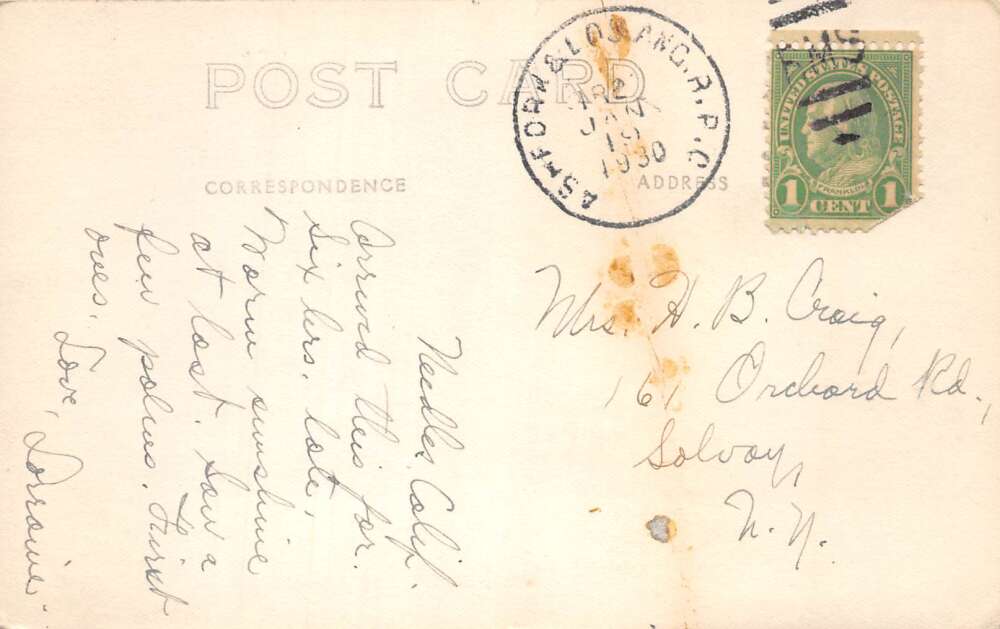 POST CARD
ASH FORK & LOS ANG. R.P.O.
TR 2
JAN
1930
UNITED STATES POSTAGE
FRANKLIN
1 CENT 1
CORRESPONDENCE
ADDRESS
Needles, Calif.
Arrived this far.
Six hrs. late,
Warm sunshine
at last. Saw a
few palms. First
ones.
Love,
Lorraine.
Mrs. H. B. Craig,
161 Orchard Rd.,
Solvay,
N.Y.